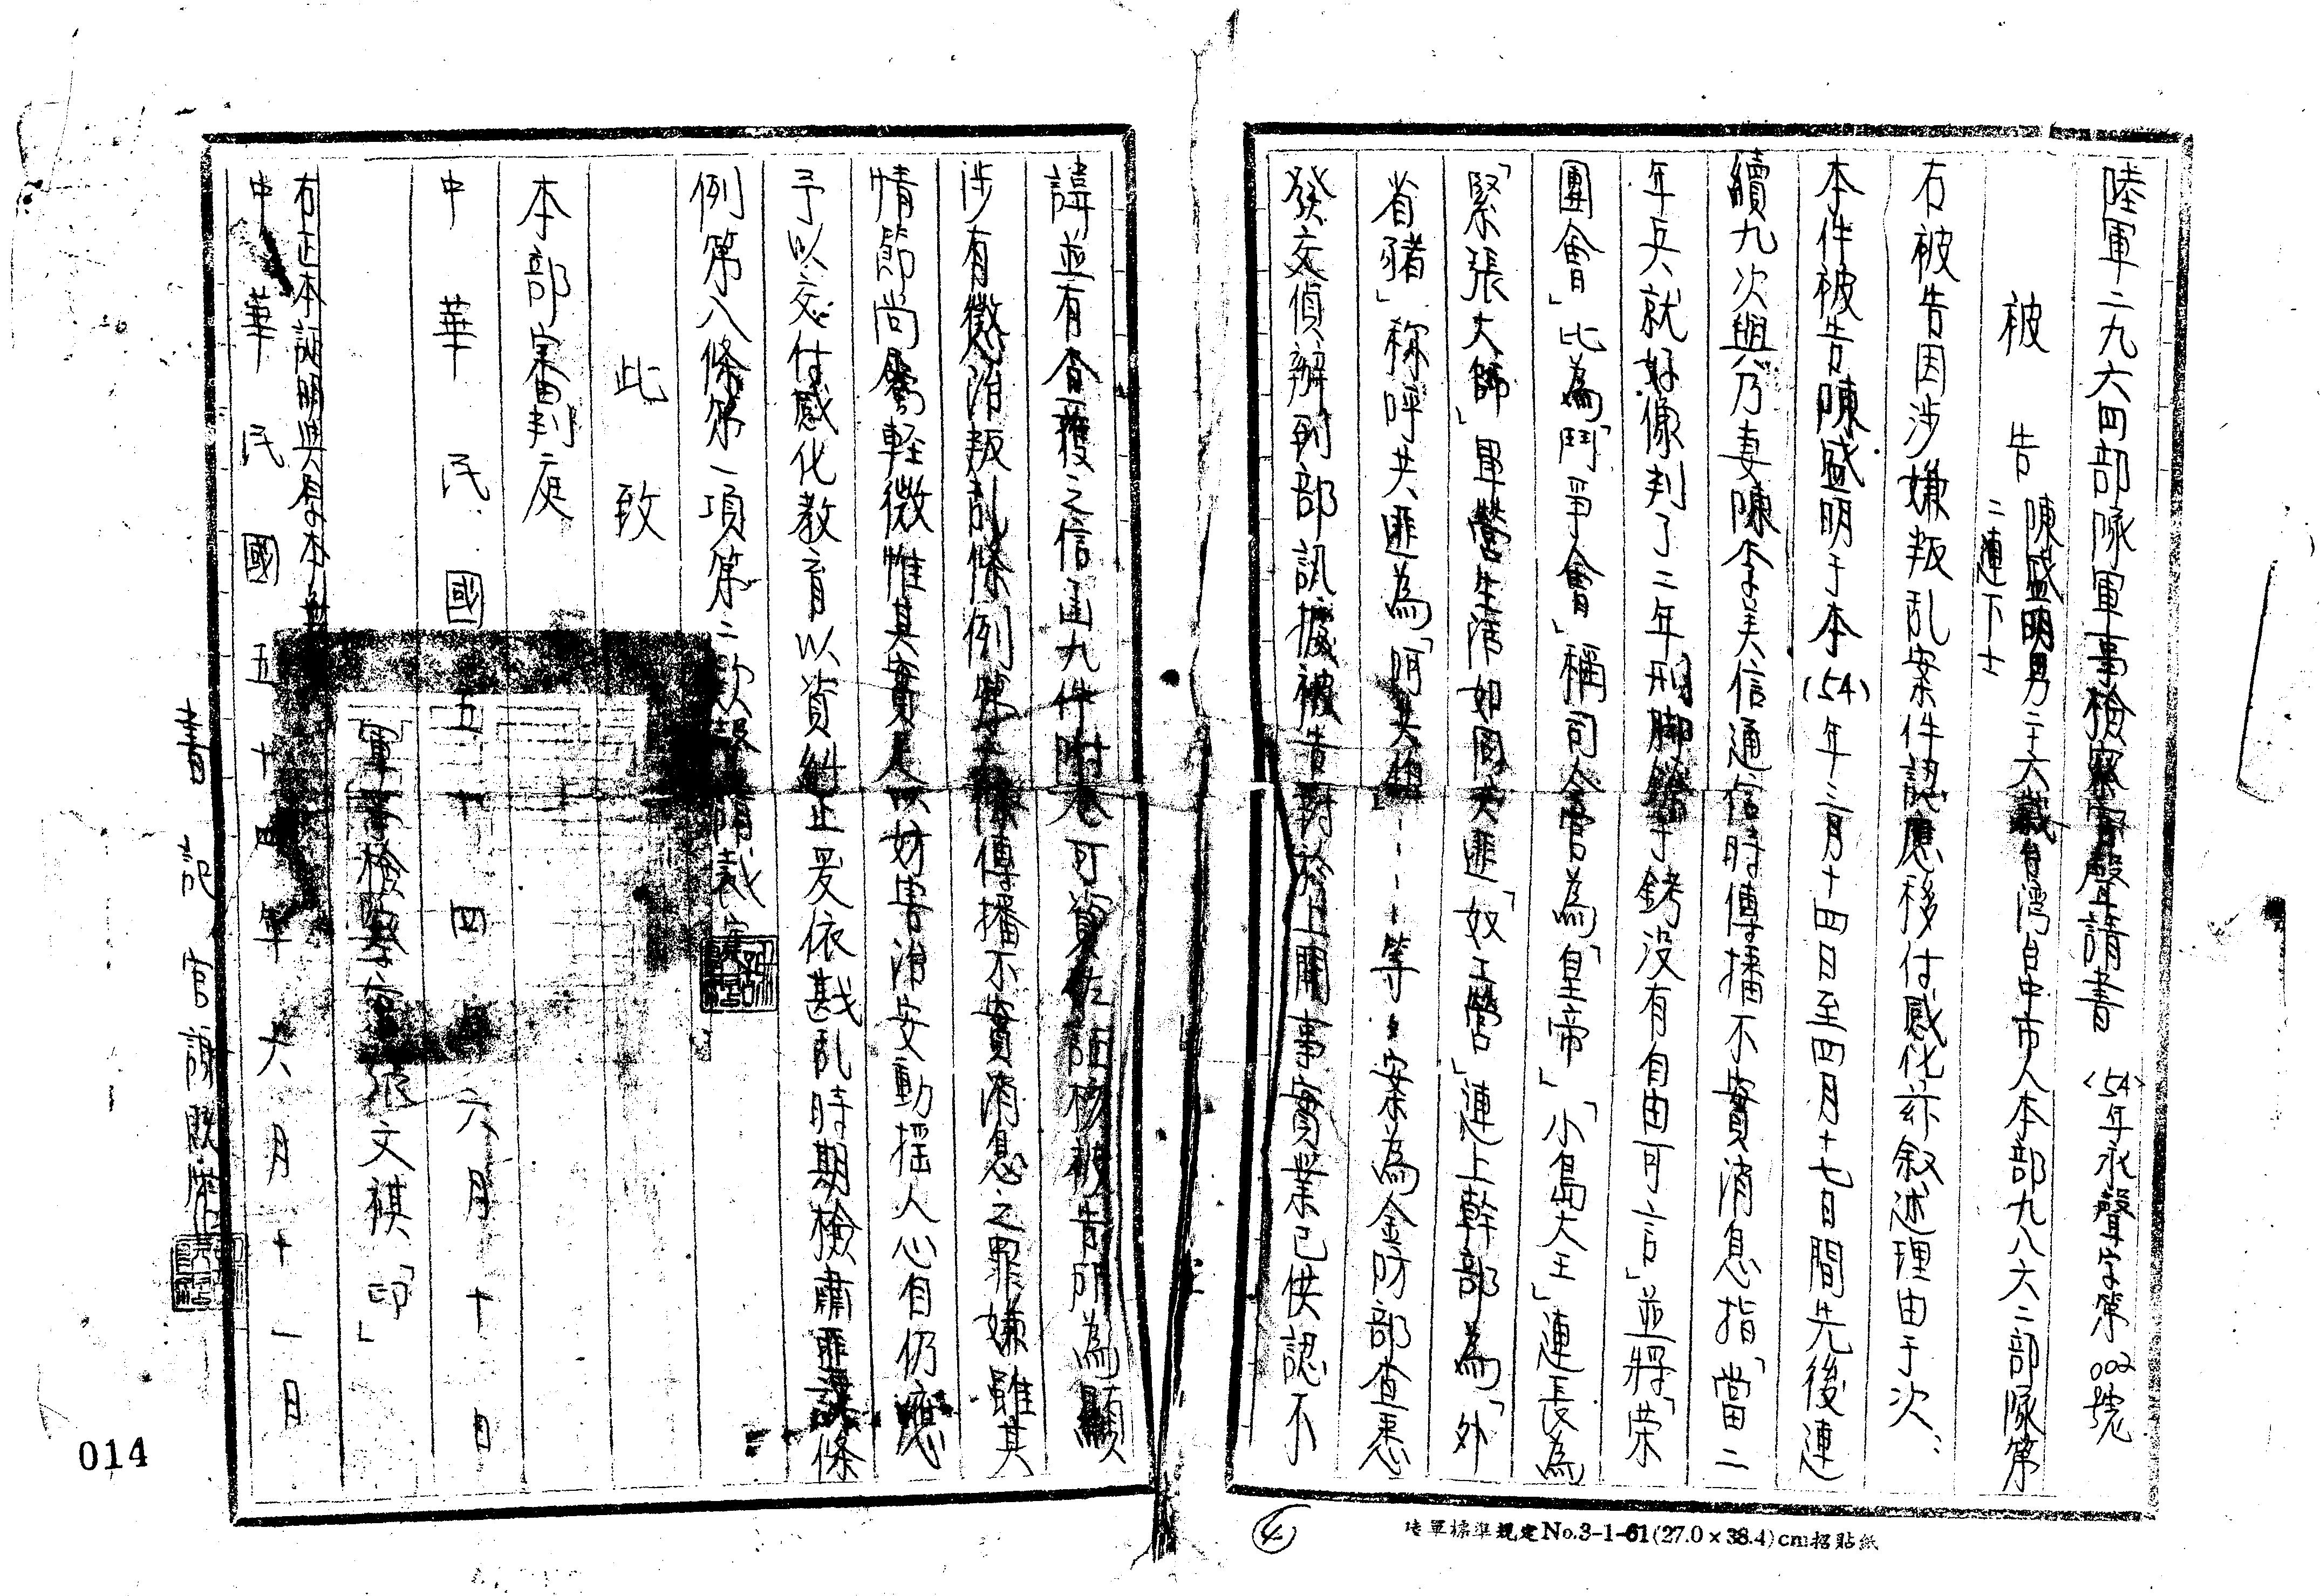 陸軍二九六四部隊軍事檢察官聲請書 (54)年永聲字第002號
被告 陳盛明男二十六歲台灣台中市人本部九八六二部隊第
二連下士
右被告因涉嫌叛乱案件認應移付感化茲叙述理由于次：
本件被告陳盛明于本(54)年二月十四日至四月十七日間先後連
續九次與乃妻陳金美信通信時傳播不實消息指「當二
年兵就好像判了二年刑腳鐐手銬沒有自由可言」並將「榮
團會」此為「鬥爭會」稱司令官為「皇帝」「小島大王」連長為
「緊張大師」軍營生活如同共匪「奴工營」連上幹部為「外
省豬」稱呼共匪為「阿共」等一案為金防部查悉
發交偵辦到部訊據被告對於上開事實業已供認不
諱並有查獲之信函九件附卷可資佐証核被告所為顯
涉有懲治叛乱條例第 條傳播不實消息之罪嫌雖其
情節尚屬輕微惟其實足以妨害治安動搖人心自仍應
予以交付感化教育以資糾正爰依戡乱時期檢肅匪諜條
例第八條第一項第二款聲請裁定
此致
本部審判庭
中華民國五十四年六月十日
軍事檢察官張文祺「印」
右正本証明與原本無異
中華民國五十四年六月十一日
書記官謝
014
陸軍標準規定No.3-1-61(27.0×38.4)cm招貼紙